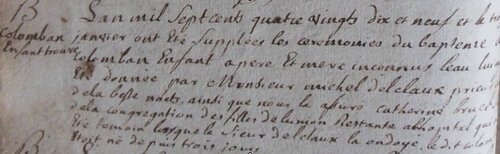 B
Colomban
Enfant trouvé
L'an mil Sept cents quatre vingts dix et neuf et le
janvier ont Eté Supplées les ceremonies du bapteme
colomban Enfant apere et mere inconnus leau lui a
Eté donnée par Monsieur michel delclaux
ainsi que nous la assuré catherine
de la congregation des filles de lunion Restante alhopital qui
Eté temoin lorsque le Sieur delclaux la ondoyé, le dit colom
Etoit né depuis trois jours
B